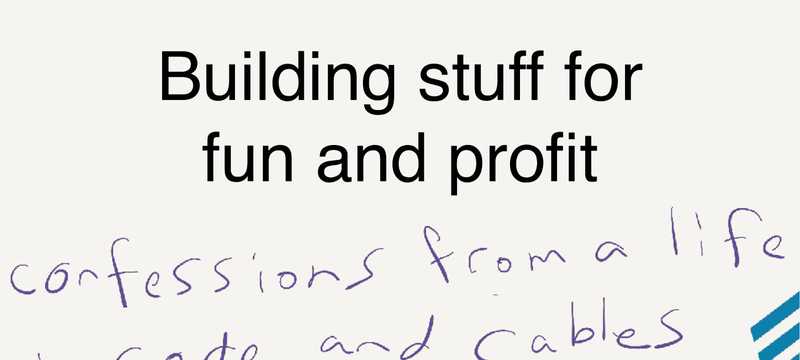 Building stuff for
fun and profit
confessions from a life
in code and cables